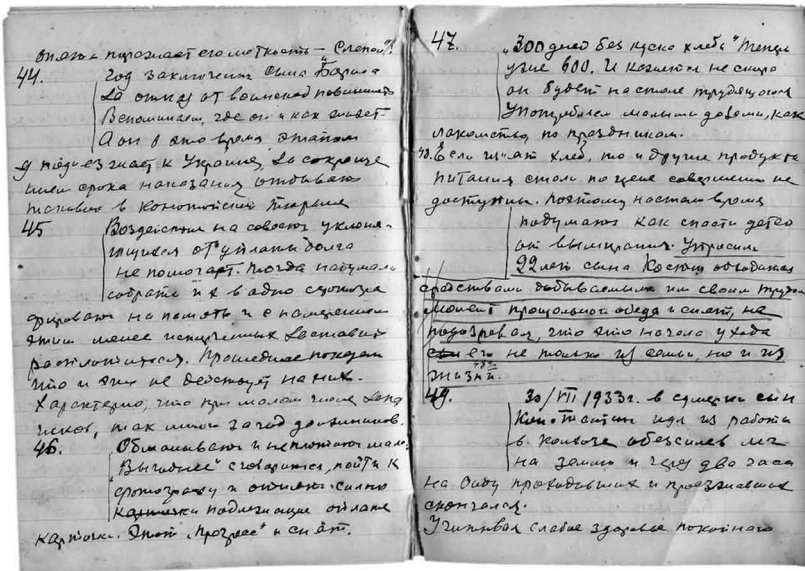 опять поражает его меткость – Слепой"!
44. Год заключения сына Бориса
за отказ от воинской повинности
Вспоминаем, где он и как живет
А он в это время этапом
подъезжает к Украине, за сокраще
нием срока наказания отбывать
таковое в Конотопской тюрьме
45 Воздействие на совесть уклоня-
ющихся от уплаты долга
не помогает. Тогда надумали
собрать их в одно
на память и с намерением
этим менее заставить
расплатиться. Прошедшее показало
что и это не действует на них.
Характерно, что при малом числе
чиков, так много за год должников.
46. Обманывают и не платят мало:
"Выгоднее" сговориться, пойти к
фотографу и
подлежащие оплате
карточки. Этот "прогресс" и снят.
47. "300 дней без куска хлеба" Теперь
уже 600. И кажется не скоро
он будет на столе трудящегося
Употребляем малыми дозами, как
лакомство, по праздникам.
48. Если нет хлеб, то и другие продукты
питания стали по цене совершенно не
доступны. Поэтому настало время
подумать как спасти детей
от вымирания. Упросили
22 лет сына Костю
средствами добываемыми им своим трудом
момент прощального обеда и снят, не
подозревая, что это начало ухода
его не только из семьи, но и из
жизни.
49. 30/VII 1933г. в сумерки сын
Константин идя из работы
в колхозе обессилев лег
на землю и через два часа
на виду проходивших и проезжавших
скончался.
Учитывая слабое здоровье покойного